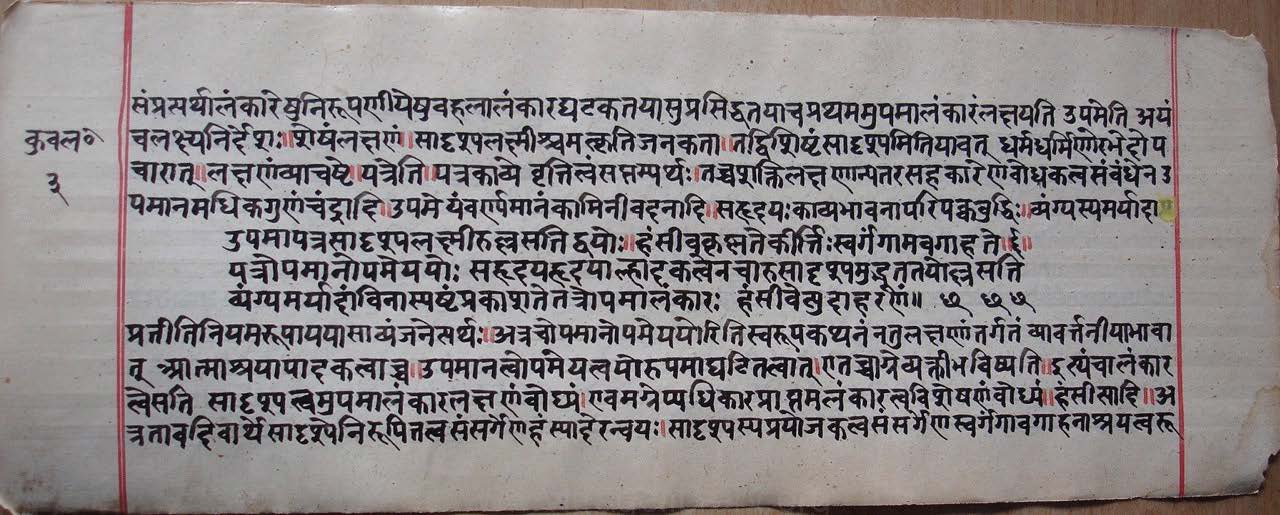 संप्रत्यर्थालंकारेषुनिरूपणीयेषुबहलालंकारघटकतयासुप्रसिद्धतयाचप्रथममुपमालंकारंलक्षयति उपमेति अयं
कुवल॰
चलक्ष्यनिर्देशः॥शेषंलक्षणं॥सादृश्यलक्ष्मीश्चमत्कृतिजनकता॥तद्विशिष्टंसादृश्यमितियावत् धर्मधर्मिणोरभेदोप
३
चारात्॥लक्षणंव्याचष्टे॥यत्रेति॥यत्रकाव्ये वृत्तित्वंसप्तम्यर्थः॥तच्चशक्तिलक्षणान्यतरसहकारेणबोधकत्वसंबंधेन उ
पमानमधिकगुणंचंद्रादि॥उपमेयंवर्ण्यमानंकामिनीवदनादि॥सहृदयःकाव्यभावनापरिपक्वबुद्धिः॥व्यंग्यस्यमर्यादा
उपमायत्रसादृश्यलक्ष्मीरुल्लसतिद्वयोः॥हंसीवकृष्णतेकीर्त्तिःस्वर्गंगामवगाहते॥६॥
यत्रोपमानोपमेययोः सहृदयहृदयाल्हादकत्वेनचारुसादृश्यमुद्भूततयोल्लसति
व्यंग्यमर्यादांविनास्पष्टंप्रकाशतेतत्रोपमालंकारः हंसीवेत्युदाहरणं॥ ७ ७ ७
प्रतीतिनियमरूपाययासाव्यंजनेत्यर्थः॥अत्रचोपमानोपमेययोरितिस्वरूपकथनंनतुलक्षणांतर्गतंव्यावर्त्तनीयाभावा
त् आत्माश्रयापादकत्वाच्च॥उपमानत्वोपमेयत्वयोरुपमाघटितत्वात्॥एतच्चाग्रेव्यक्तीभविष्यति॥इत्थंचालंकार
त्वेसति सादृश्यत्वमुपमालंकारलक्षणंबोध्यं॥एवमग्रेप्यधिकारप्राप्तमलंकारत्वंविशेषणंबोध्यं॥हंसीसादि॥अ
त्रतावदिवार्थसादृश्येनिरूपितत्वसंसर्गेणहंस्यादेरन्वयः॥सादृश्यस्यप्रयोजकत्वसंसर्गेणस्वर्गंगावगाहनाश्रयत्वरू